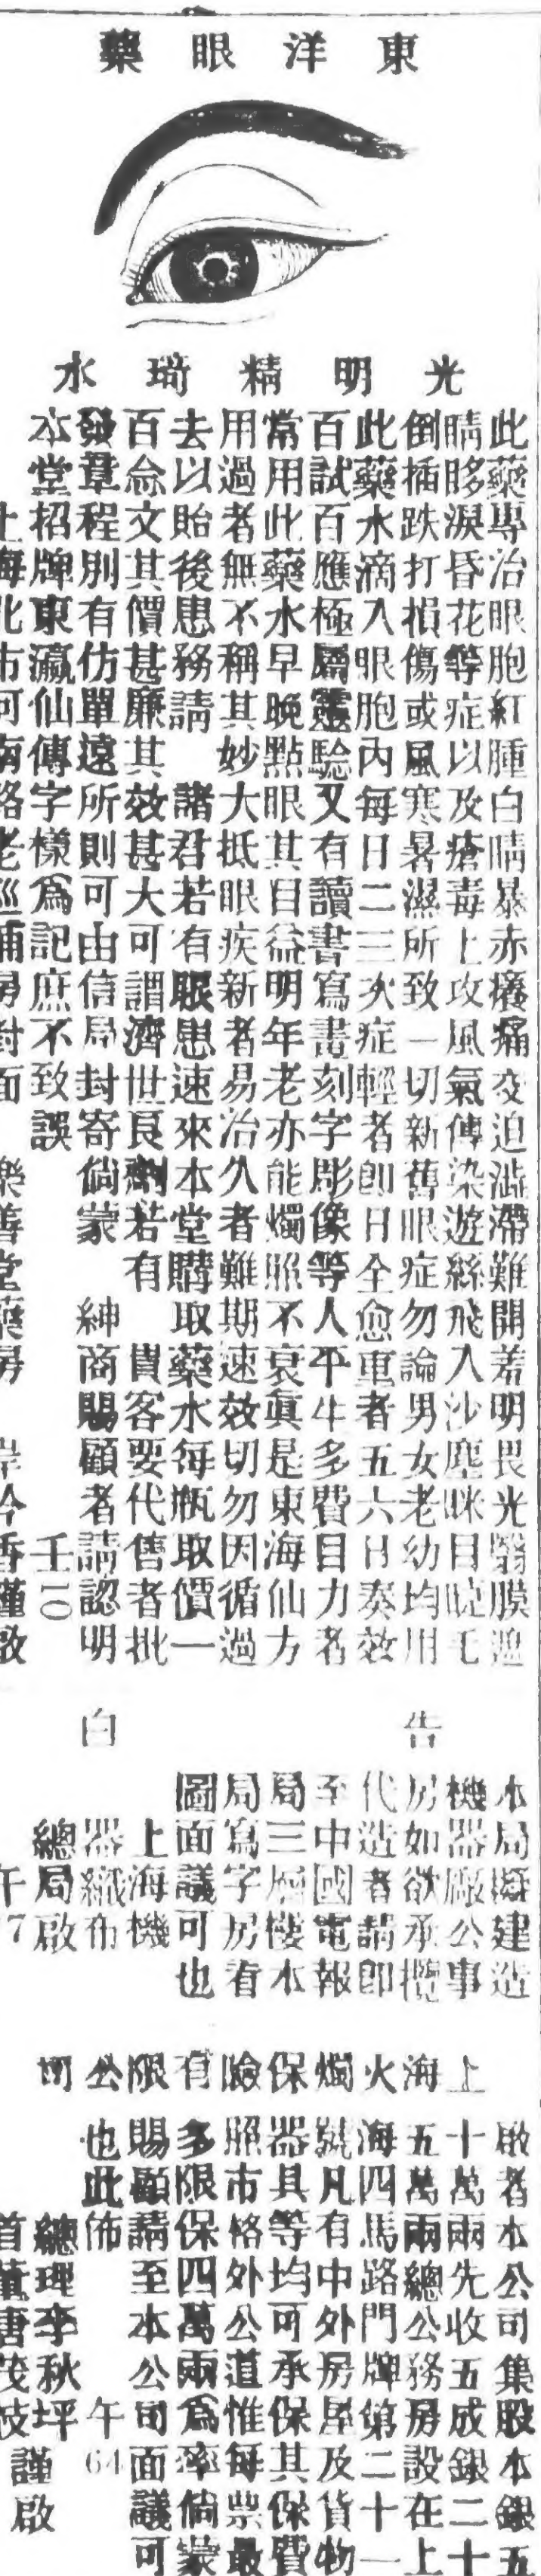 東洋眼藥
光明精琦水
此藥專治眼胞紅腫白睛暴赤癢痛交迫澁滯難開羞明畏光翳膜遮
睛眵淚昏花等症以及瘡毒上攻風氣傳染遊絲飛入沙塵眯目睫毛
倒插跌打損傷或風寒暑濕所致一切新舊眼症勿論男女老幼均用
此藥水滴入眼胞內每日二三次症輕者卽日全愈重者五六日奏效
百試百應極屬靈驗又有讀書寫書刻字彫像等人平生多費目力者
常用此藥水早晚點眼其目益明年老亦能燭照不衰眞是東海仙方
用過者無不稱其妙大抵眼疾新者易治久者難期速效切勿因循過
去以貽後患務請 諸君若有眼患速來本堂購取藥水每瓶取價一
百念文其價甚廉其效甚大可謂濟世良劑若有 貴客要代售者批
發章程別有仿單遠所則可由信局封寄倘蒙 紳商賜顧者請認明
本堂招牌東瀛仙傳字樣爲記庶不致誤 壬10
上海北市河南路老巡捕房對面 樂善堂藥房 岸吟香謹啟
告白
本局擬建造
機器廠公事
房如欲承攬
代造者請卽
至中國電報
局三層樓本
局寫字房看
圖面議可也
上海機
器織布
總局啟
午7
上海火燭保險有限公司
啟者本公司集股本銀五
十萬兩先收五成銀二十
五萬兩總公務房設在上
海四馬路門牌第二十一
號凡有中外房屋及貨物
器具等均可承保其保費
照市格外公道惟每票最
多限保四萬兩爲率倘蒙
賜顧請至本公司面議可
也此佈 午64
總理李秋坪
首董唐茂枝 謹啟